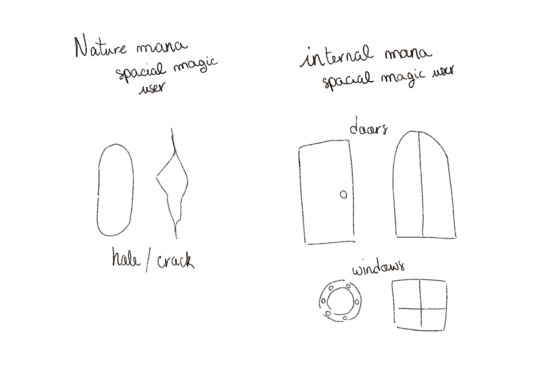 Nature mana
spacial magic
user
internal mana
spacial magic user
doors
hole / crack
windows